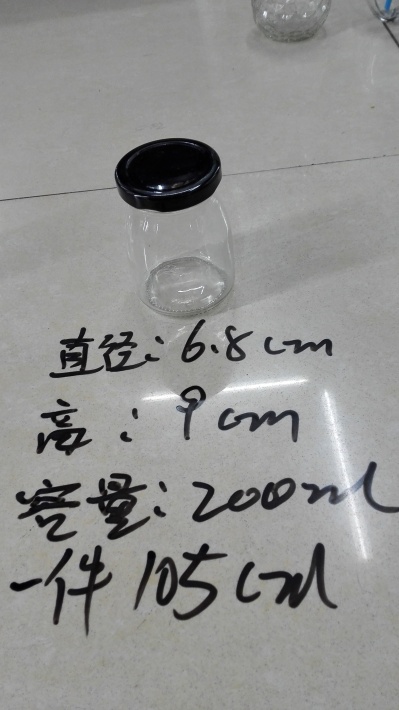 直径:6.8cm
高:9cm
容量:200ml
一件105cm